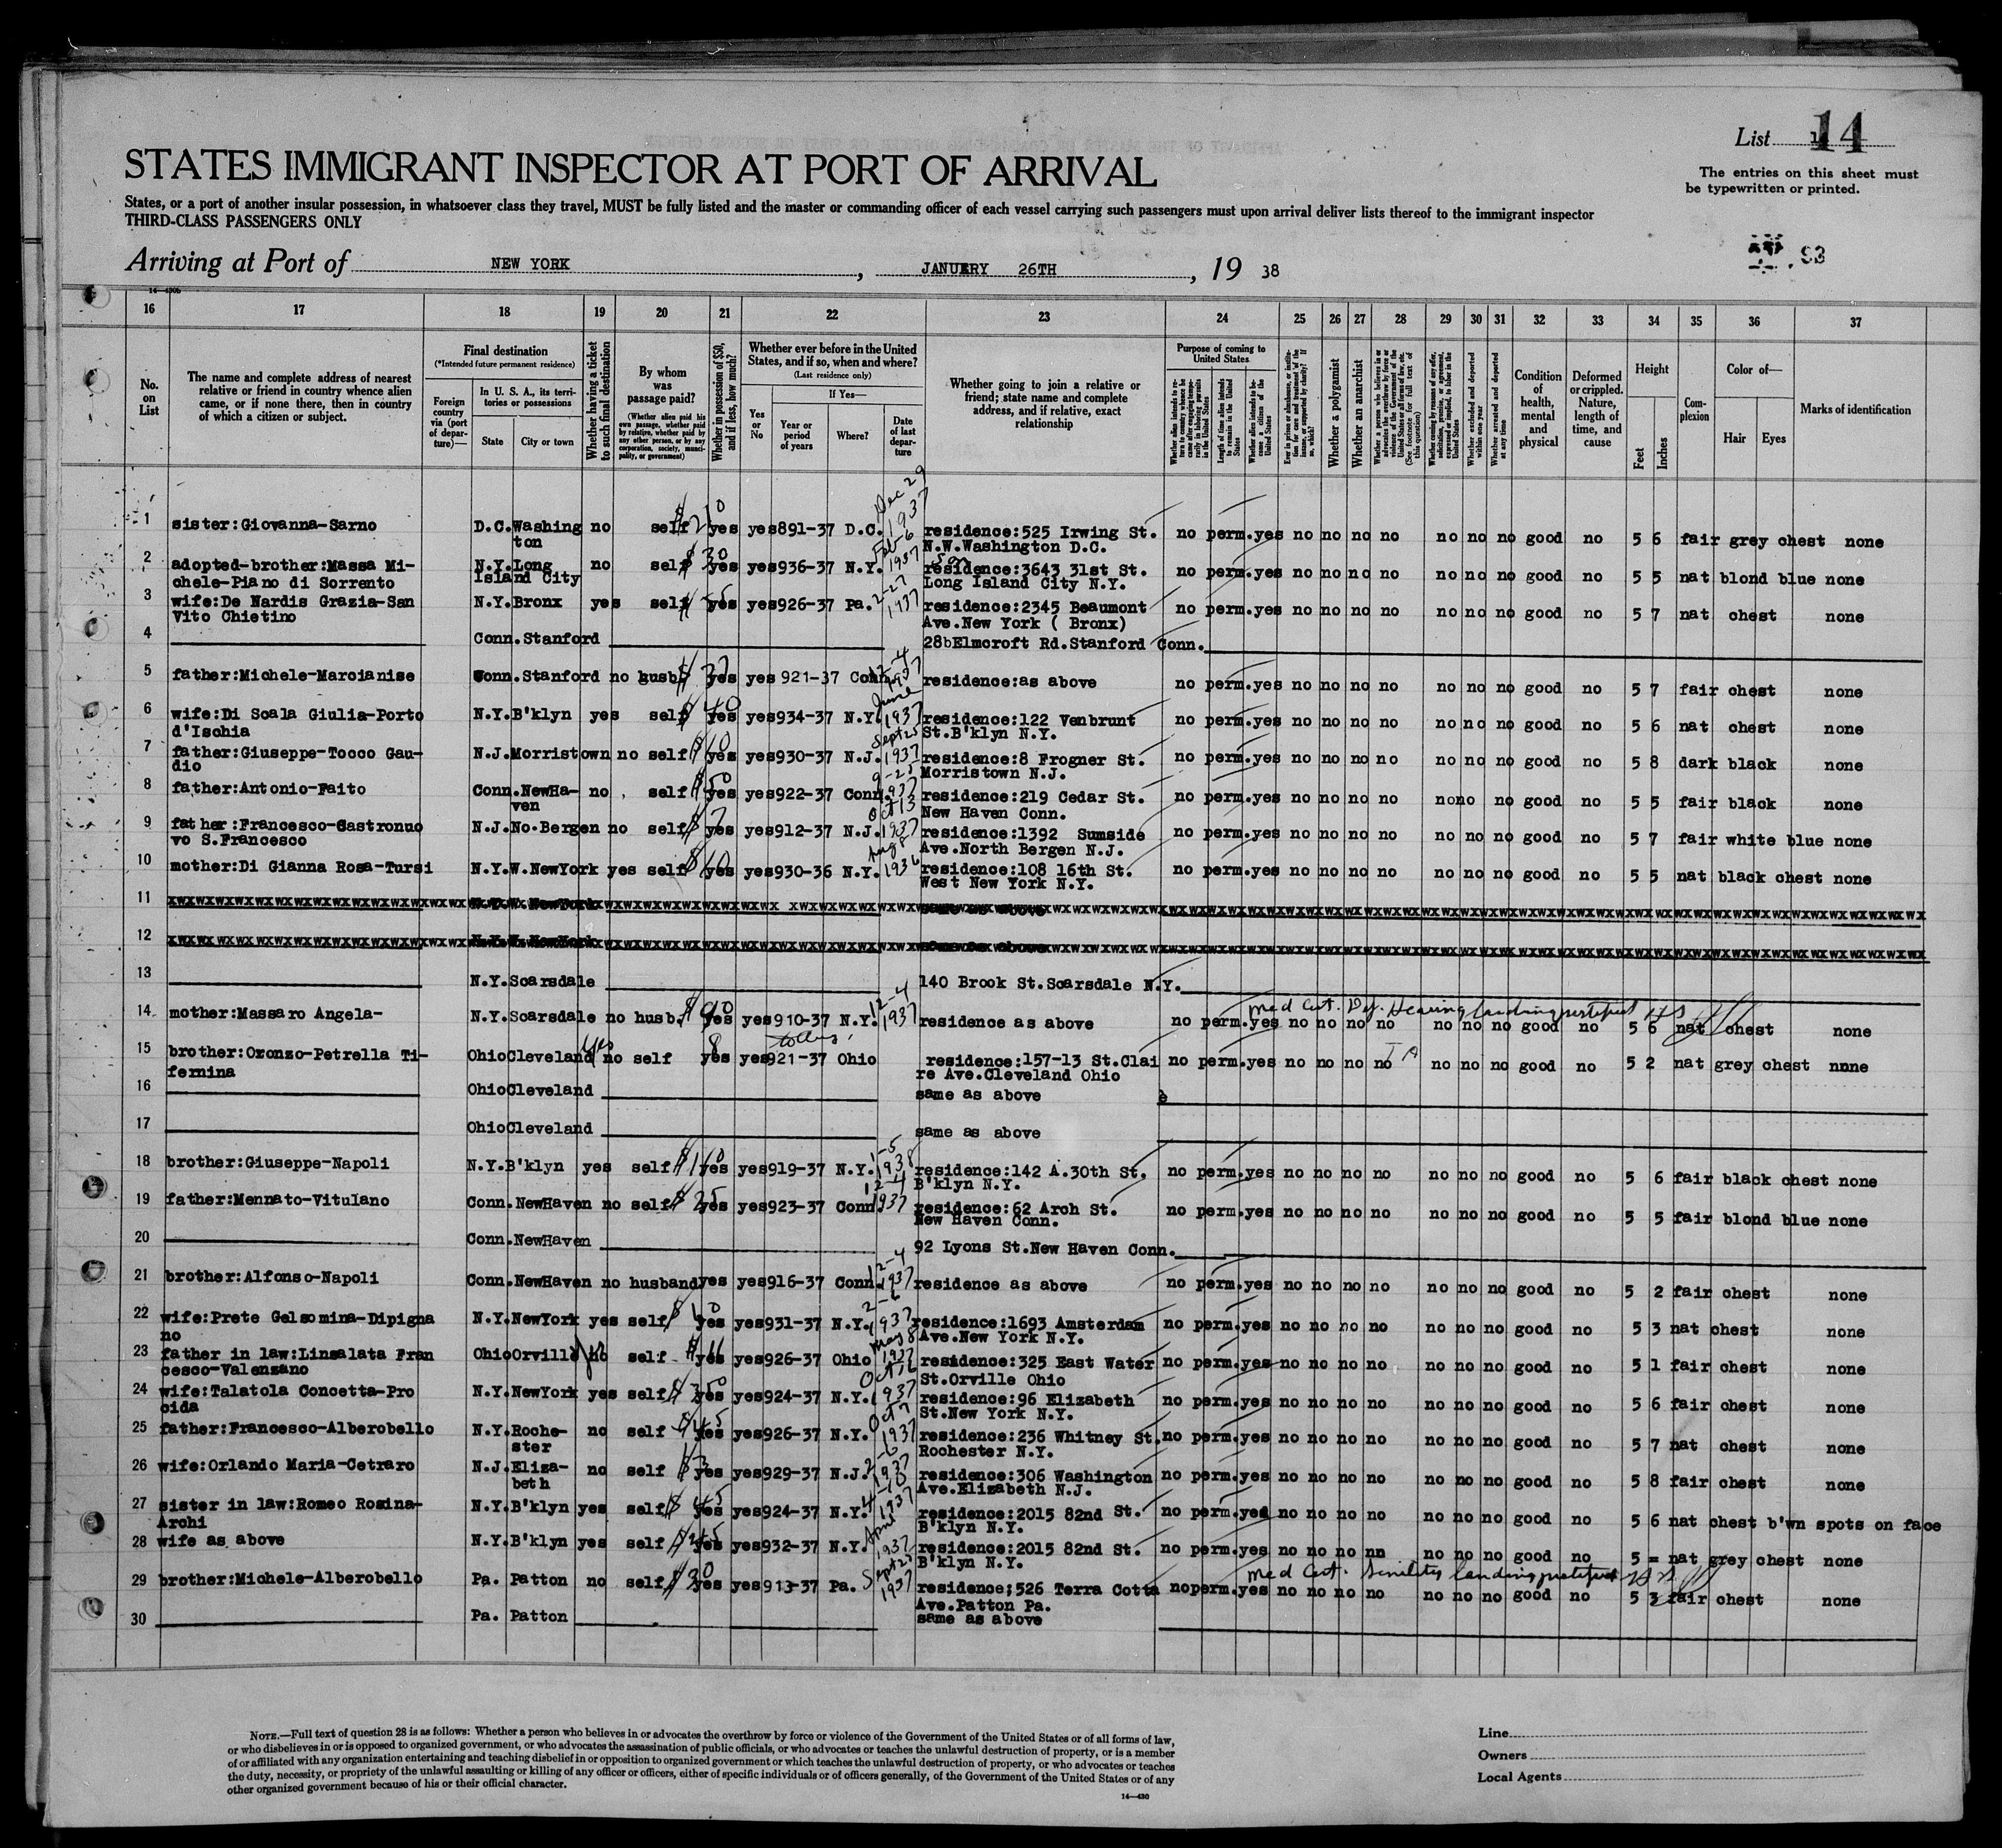 List 14
The entries on this sheet must
be typewritten or printed.
STATES IMMIGRANT INSPECTOR AT PORT OF ARRIVAL
States, or a port of another insular possession, in whatsoever class they travel, MUST be fully listed and the master or commanding officer of each vessel carrying such passengers must upon arrival deliver lists thereof to the immigrant inspector
THIRD-CLASS PASSENGERS ONLY
Arriving at Port of NEW YORK, JANUERY 26TH, 19 38
93
14—430b
16 17 18 19 20 21 22 23 24 25 26 27 28 29 30 31 32 33 34 35 36 37
No. on List
The name and complete address of nearest relative or friend in country whence alien came, or if none there, then in country of which a citizen or subject.
Final destination
(*Intended future permanent residence)
Foreign country via (port of departure)—
In U. S. A., its territories or possessions
State
City or town
Whether having a ticket to such final destination
By whom was passage paid?
(Whether alien paid his own passage, whether paid by relative, whether paid by any other person, or by any corporation, society, municipality, or government)
Whether in possession of $50, and if less, how much?
Whether ever before in the United States, and if so, when and where?
(Last residence only)
Yes or No
If Yes—
Year or period of years
Where?
Date of last departure
Whether going to join a relative or friend; state name and complete address, and if relative, exact relationship
Purpose of coming to United States
Length of time alien intends to remain in the United States
Whether alien intends to become a citizen of the United States
Whether a polygamist
Whether an anarchist
(See footnote for full text of this question)
Whether excluded and deported within one year
Whether arrested and deported at any time
Condition of health, mental and physical
Deformed or crippled. Nature, length of time, and cause
Height
Feet
Inches
Complexion
Color of—
Hair
Eyes
Marks of identification
1 sister:Giovanna-Sarno D.C. Washing no self $210 yes yes 891-37 D.C. Dec 29 1937 residence:525 Irwing St. no perm. yes no no no no no no no good no 5 6 fair grey chest none
ton N.W.Washington D.C.
2 adopted-brother:Massa Mi- N.Y. Long no self $30 yes yes 936-37 N.Y. Feb 6 1937 residence:3643 31st St. no perm. yes no no no no no no no good no 5 5 nat blond blue none
chele-Piano di Sorrento Island City Long Island City N.Y.
3 wife:De Nardis Grazia-San N.Y. Bronx yes self yes yes 926-37 Pa. 2-27 1937 residence:2345 Beaumont no perm. yes no no no no no no no good no 5 7 nat chest none
Vito Chietino Ave.New York ( Bronx)
4 Conn. Stanford 28bElmcroft Rd.Stanford Conn.
5 father:Michele-Marcianise Conn. Stanford no husb. $37 yes yes 921-37 Conn. 12-4 1937 residence:as above no perm. yes no no no no no no no good no 5 7 fair chest none
6 wife:Di Scala Giulia-Porto N.Y. B'klyn yes self $40 yes yes 934-37 N.Y. June 1937 residence:122 Venbrunt no perm. yes no no no no no no no good no 5 6 nat chest none
d'Ischia St.B'klyn N.Y.
7 father:Giuseppe-Tocco Gau- N.J. Morristown no self $10 yes yes 930-37 N.J. Sept 25 1937 residence:8 Frogner St. no perm. yes no no no no no no no good no 5 8 dark black none
dio Morristown N.J.
8 father:Antonio-Faito Conn. NewHa- no self $50 yes yes 922-37 Conn. 9-25 1937 residence:219 Cedar St. no perm. yes no no no no no no no good no 5 5 fair black none
ven New Haven Conn.
9 father:Francesco-Castronuo N.J. No.Bergen no self $7 yes yes 912-37 N.J. Oct 13 1937 residence:1392 Sumside no perm. yes no no no no no no no good no 5 7 fair white blue none
vo S.Francesco Ave.North Bergen N.J.
10 mother:Di Gianna Rosa-Tursi N.Y. W.NewYork yes self $10 yes yes 930-36 N.Y. Aug 8 1936 residence:108 16th St. no perm. yes no no no no no no no good no 5 5 nat black chest none
West New York N.Y.
11 N.Y.W.NewYork same as above
12 N.Y.W.NewYork same as above
13 N.Y. Scarsdale 140 Brook St.Scarsdale N.Y.
Med Cert. Def. Hearing landing justified HS
14 mother:Massaro Angela- N.Y. Scarsdale no husb. $90 yes yes 910-37 N.Y. 12-4 1937 residence as above no perm. yes no no no no no no no good no 5 6 nat chest none
15 brother:Oronzo-Petrella Ti- Ohio Cleveland yes no self 8 dollars yes yes 921-37 Ohio residence:157-13 St.Clai no perm. yes no no no no no no no good no 5 2 nat grey chest none
fernina re Ave.Cleveland Ohio
16 Ohio Cleveland same as above
17 Ohio Cleveland same as above
18 brother:Giuseppe-Napoli N.Y. B'klyn yes self yes yes 919-37 N.Y. 1-5 1938 residence:142 A.30th St. no perm. yes no no no no no no no good no 5 6 fair black chest none
B'klyn N.Y.
19 father:Mennato-Vitulano Conn. NewHaven no self $25 yes yes 923-37 Conn. 12-4 1937 residence:62 Arch St. no perm. yes no no no no no no no good no 5 5 fair blond blue none
New Haven Conn.
20 Conn. NewHaven 92 Lyons St.New Haven Conn.
21 brother:Alfonso-Napoli Conn. NewHaven no husband yes yes 916-37 Conn. 12-4 1937 residence as above no perm. yes no no no no no no no good no 5 2 fair chest none
22 wife:Prete Gelsomina-Dipigna N.Y. NewYork yes self $10 yes yes 931-37 N.Y. 2-6 1937 residence:1693 Amsterdam no perm. yes no no no no no no no good no 5 3 nat chest none
no Ave.New York N.Y.
23 father in law:Linsalata Fran Ohio Orville no self $11 yes yes 926-37 Ohio May 8 1937 residence:325 East Water no perm. yes no no no no no no no good no 5 1 fair chest none
cesco-Valenzano St.Orville Ohio
24 wife:Talatola Concetta-Pro N.Y. NewYork yes self $350 yes yes 924-37 N.Y. Oct 16 1937 residence:96 Elizabeth no perm. yes no no no no no no no good no 5 6 fair chest none
cida St.New York N.Y.
25 father:Francesco-Alberobello N.Y. Roche- no self $45 yes yes 926-37 N.Y. Oct 7 1937 residence:236 Whitney St. no perm. yes no no no no no no no good no 5 7 nat chest none
ster Rochester N.Y.
26 wife:Orlando Maria-Cetraro N.J. Eliza- no self $3 yes yes 929-37 N.J. 2-6 1937 residence:306 Washington no perm. yes no no no no no no no good no 5 8 fair chest none
beth Ave.Elizabeth N.J.
27 sister in law:Romeo Rosina- N.Y. B'klyn yes self $45 yes yes 924-37 N.Y. 1937 residence:2015 82nd St. no perm. yes no no no no no no no good no 5 6 nat chest b'wn spots on face
Archi B'klyn N.Y.
28 wife as above N.Y. B'klyn yes self $245 yes yes 932-37 N.Y. April 1937 residence:2015 82nd St. no perm. yes no no no nn no no no good no 5 = nat grey chest none
B'klyn N.Y.
Med Cert. Senility landing justified HS
29 brother:Michele-Alberobello Pa. Patton no self $30 yes yes 913-37 Pa. Sept 25 1937 residence;526 Terra Cotta no perm. yes no no no no no no no good no 5 3 fair chest none
Ave.Patton Pa.
30 Pa. Patton same as above
NOTE.—Full text of question 28 is as follows: Whether a person who believes in or advocates the overthrow by force or violence of the Government of the United States or of all forms of law,
or who disbelieves in or is opposed to organized government, or who advocates the assassination of public officials, or who advocates or teaches the unlawful destruction of property, or is a member
of or affiliated with any organization entertaining and teaching disbelief in or opposition to organized government or which teaches the unlawful destruction of property, or who advocates or teaches
the duty, necessity, or propriety of the unlawful assaulting or killing of any officer or officers, either of specific individuals or of officers generally, of the Government of the United States or of any
other organized government because of his or their official character.
14—430
Line
Owners
Local Agents